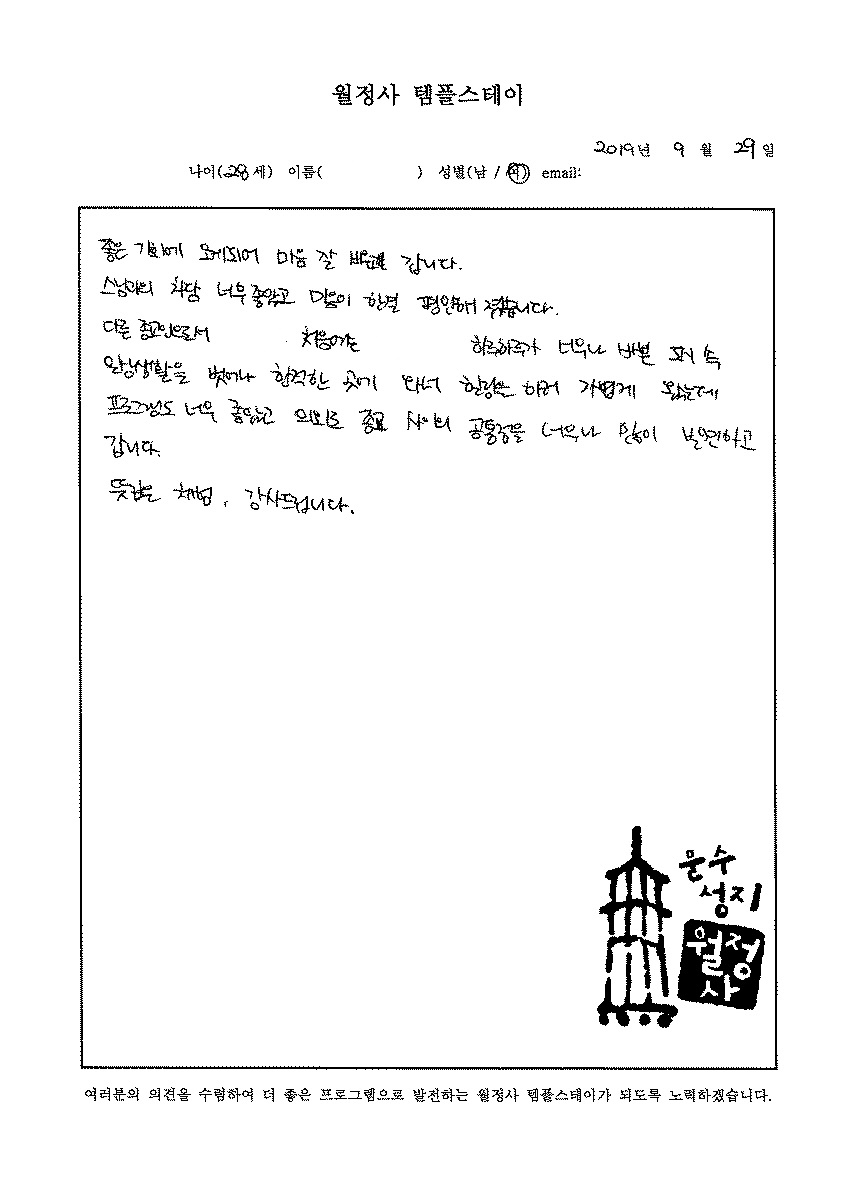 월정사 템플스테이
2019년 9월 29일
나이(28세) 이름( ) 성별(남 / 여) email:
좋은 기회에 오게되어 마음 잘 비우고 갑니다.
스님과의 차담 너무 좋았고 마음이 한결 평안해 졌습니다.
다른 종교인으로서 처음에는 하루하루가 너무나 바쁜 도시 속
일상생활을 벗어나 한적한 곳에 와서 힐링은 하러 가볍게 왔는데
프로그램도 너무 좋았고 의외로 종교 사이의 공통점을 너무나 많이 발견하고
갑니다.
뜻깊은 체험, 감사드립니다.
문수
성지
월정
사
여러분의 의견을 수렴하여 더 좋은 프로그램으로 발전하는 월정사 템플스테이가 되도록 노력하겠습니다.